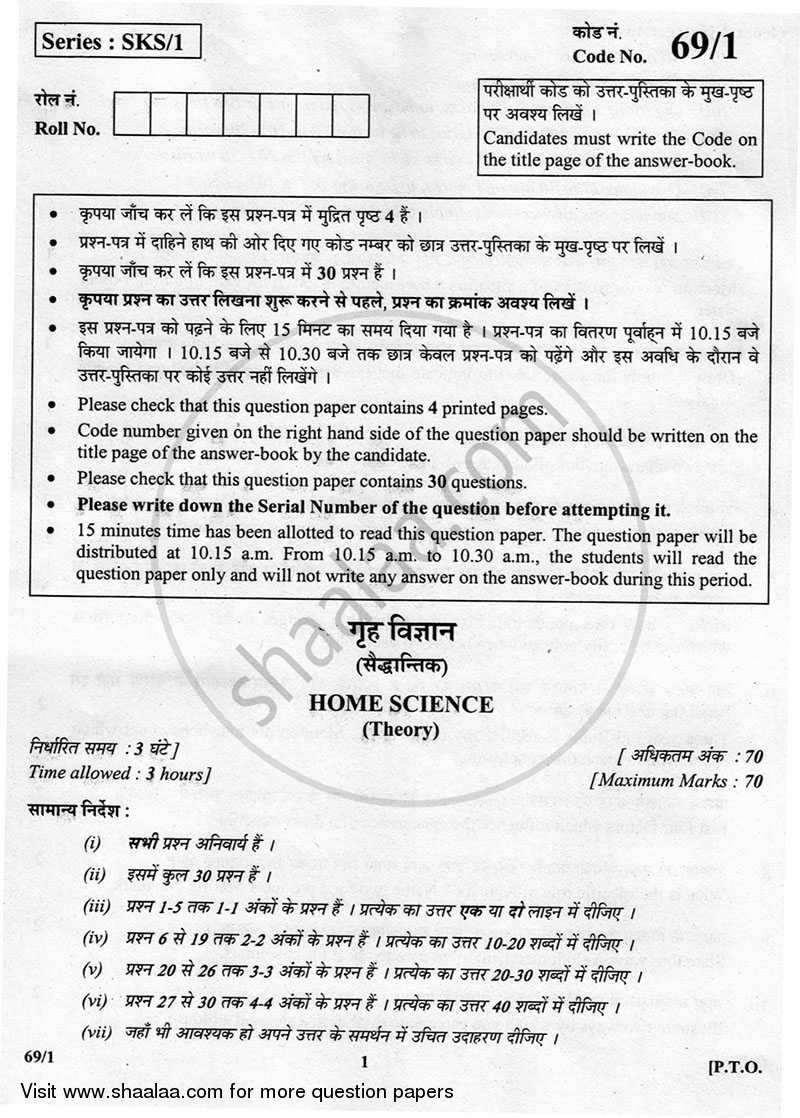 Series : SKS/1
कोड नं.
Code No. 69/1
रोल नं.
Roll No.
परीक्षार्थी कोड को उत्तर-पुस्तिका के मुख-पृष्ठ
पर अवश्य लिखें ।
Candidates must write the Code on
the title page of the answer-book.
• कृपया जाँच कर लें कि इस प्रश्न-पत्र में मुद्रित पृष्ठ 4 हैं ।
• प्रश्न-पत्र में दाहिने हाथ की ओर दिए गए कोड नम्बर को छात्र उत्तर-पुस्तिका के मुख-पृष्ठ पर लिखें ।
• कृपया जाँच कर लें कि इस प्रश्न-पत्र में 30 प्रश्न हैं ।
• कृपया प्रश्न का उत्तर लिखना शुरू करने से पहले, प्रश्न का क्रमांक अवश्य लिखें ।
• इस प्रश्न-पत्र को पढ़ने के लिए 15 मिनट का समय दिया गया है । प्रश्न-पत्र का वितरण पूर्वाह्न में 10.15 बजे
किया जायेगा । 10.15 बजे से 10.30 बजे तक छात्र केवल प्रश्न-पत्र को पढ़ेंगे और इस अवधि के दौरान वे
उत्तर-पुस्तिका पर कोई उत्तर नहीं लिखेंगे ।
• Please check that this question paper contains 4 printed pages.
• Code number given on the right hand side of the question paper should be written on the
title page of the answer-book by the candidate.
• Please check that this question paper contains 30 questions.
• Please write down the Serial Number of the question before attempting it.
• 15 minutes time has been allotted to read this question paper. The question paper will be
distributed at 10.15 a.m. From 10.15 a.m. to 10.30 a.m., the students will read the
question paper only and will not write any answer on the answer-book during this period.
shaalaa.com
गृह विज्ञान
(सैद्धान्तिक)
HOME SCIENCE
(Theory)
निर्धारित समय : 3 घंटे]
[ अधिकतम अंक : 70
Time allowed : 3 hours]
[Maximum Marks : 70
सामान्य निर्देश :
(i) सभी प्रश्न अनिवार्य हैं ।
(ii) इसमें कुल 30 प्रश्न हैं ।
(iii) प्रश्न 1-5 तक 1-1 अंकों के प्रश्न हैं । प्रत्येक का उत्तर एक या दो लाइन में दीजिए ।
(iv) प्रश्न 6 से 19 तक 2-2 अंकों के प्रश्न हैं । प्रत्येक का उत्तर 10-20 शब्दों में दीजिए ।
(v) प्रश्न 20 से 26 तक 3-3 अंकों के प्रश्न हैं । प्रत्येक का उत्तर 20-30 शब्दों में दीजिए ।
(vi) प्रश्न 27 से 30 तक 4-4 अंकों के प्रश्न हैं । प्रत्येक का उत्तर 40 शब्दों में दीजिए ।
(vii) जहाँ भी आवश्यक हो अपने उत्तर के समर्थन में उचित उदाहरण दीजिए ।
69/1
1
[P.T.O.
Visit www.shaalaa.com for more question papers